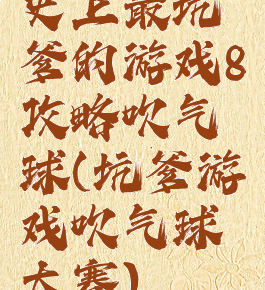 史上最坑
爹的游戏8
攻略吹气
球(坑爹游
戏吹气球
大赛)